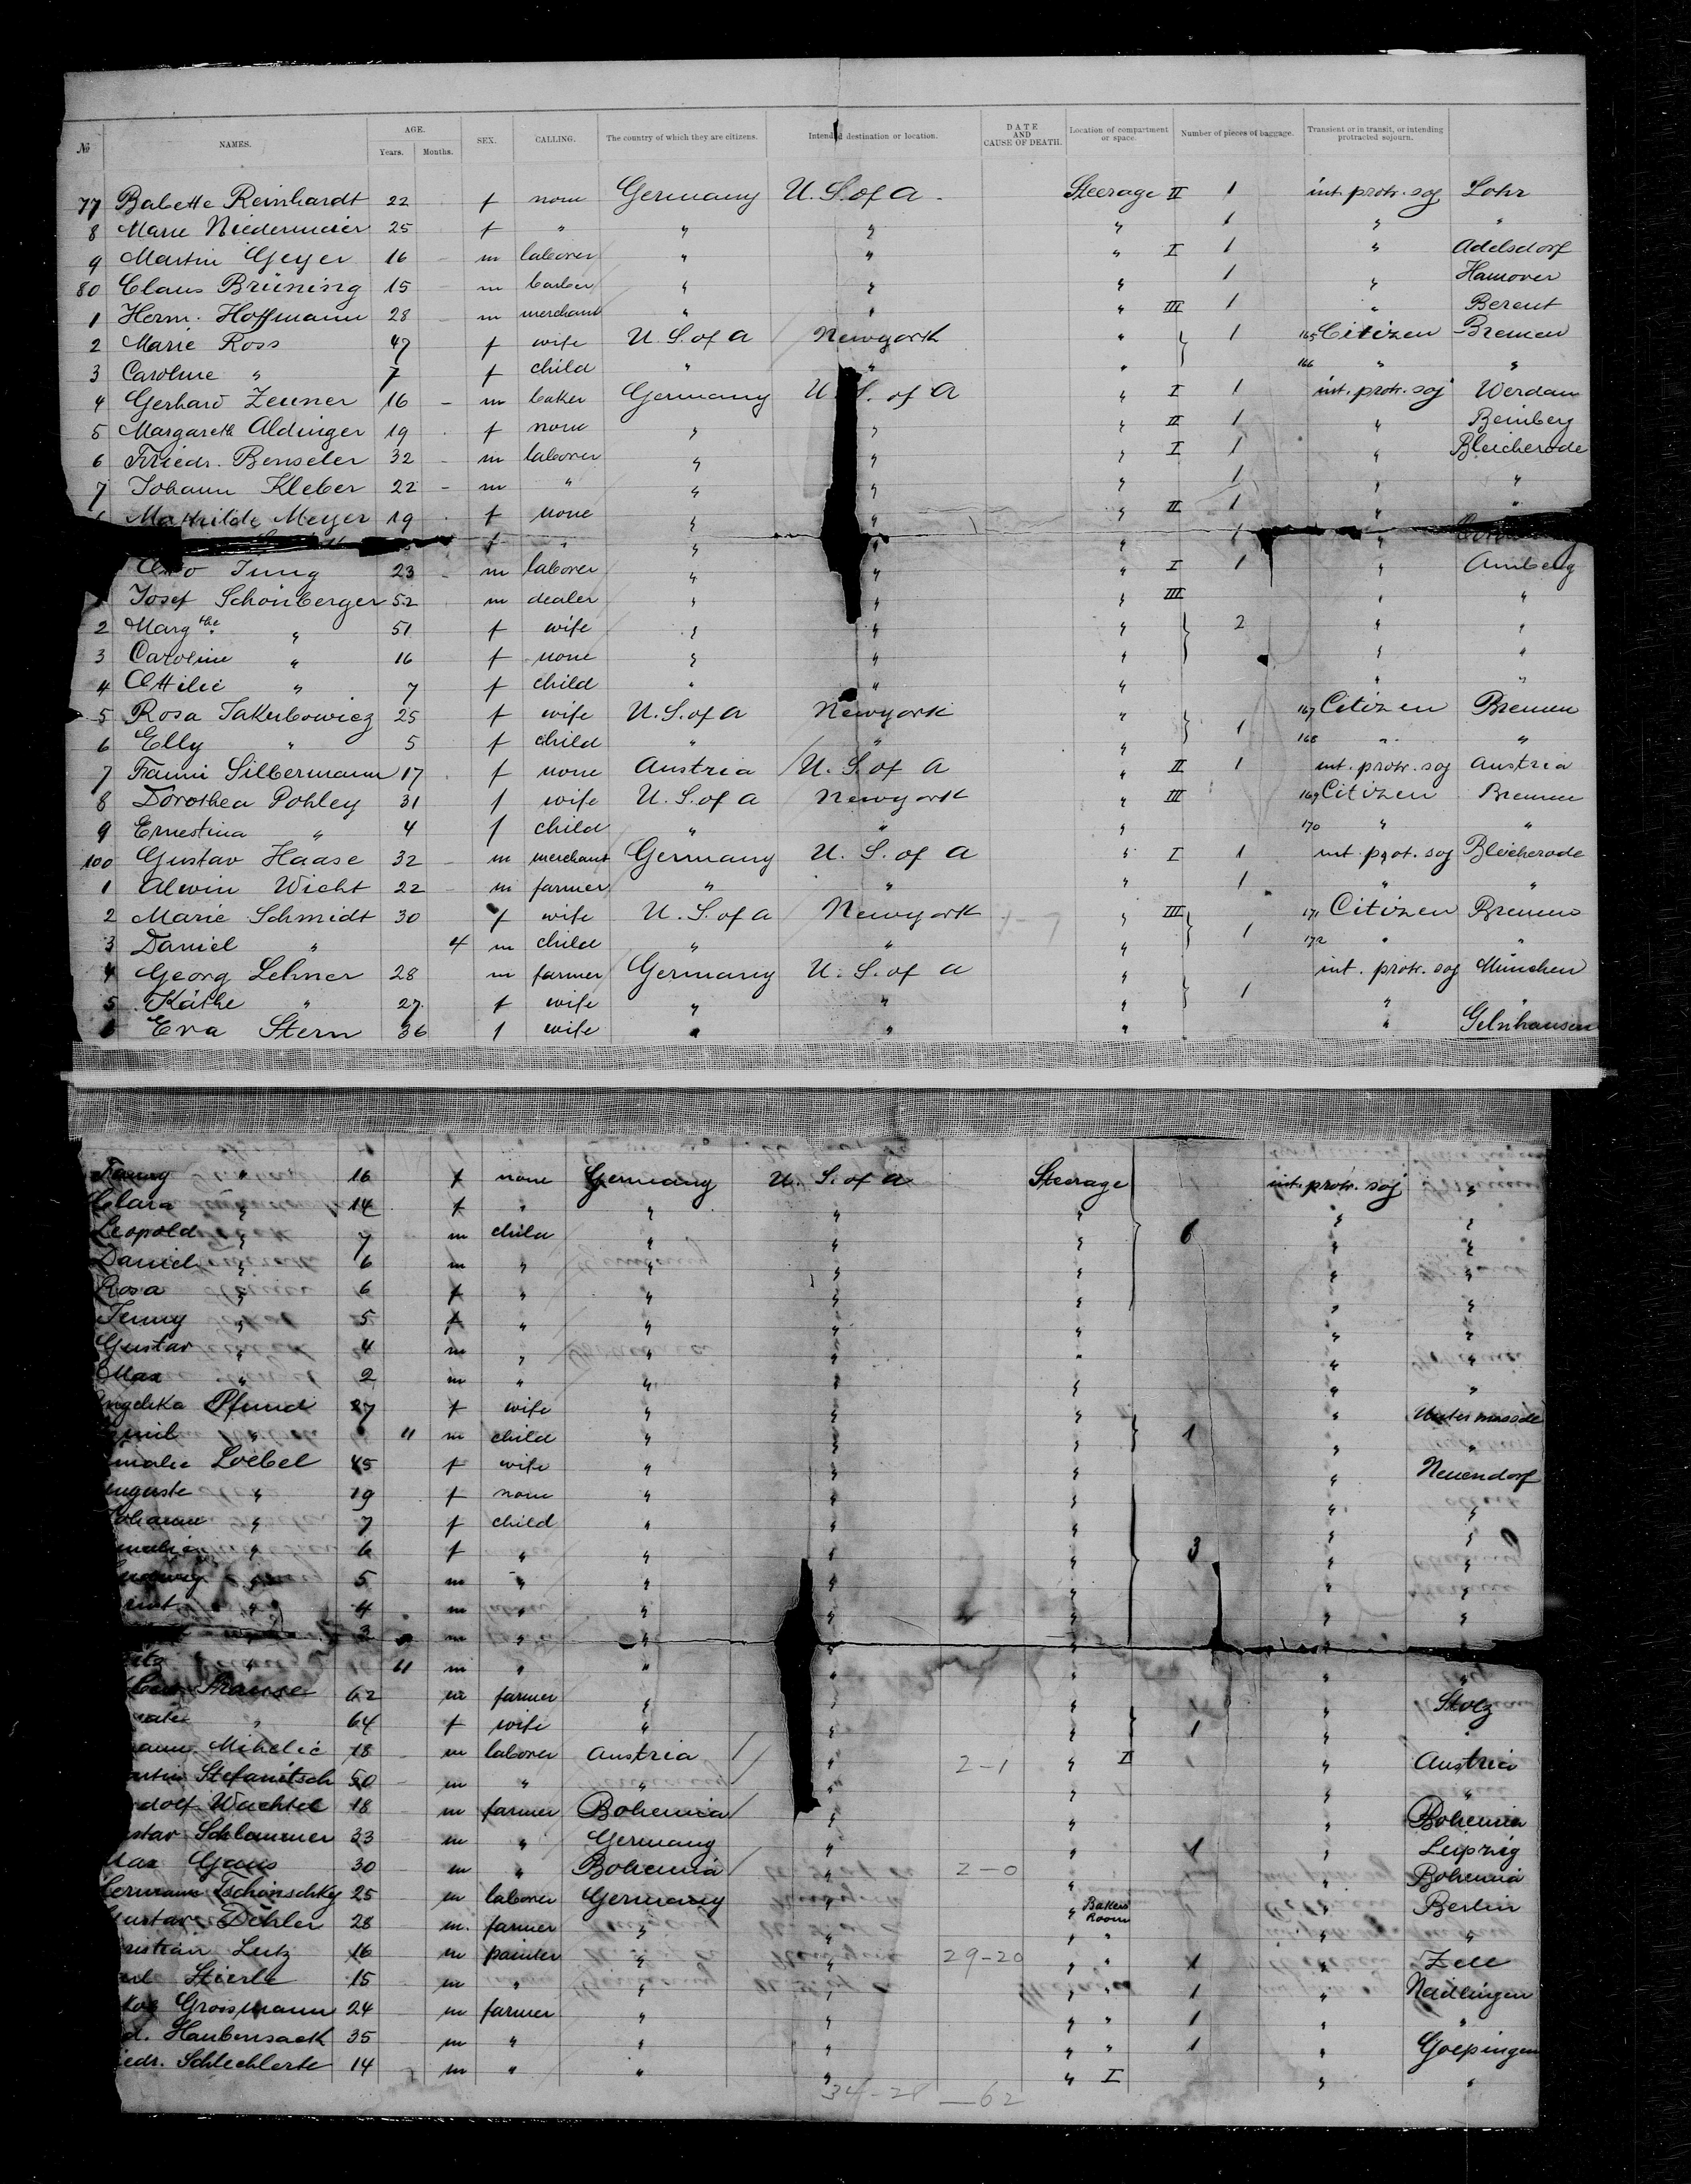 No. NAMES. AGE. Years. Months. SEX. CALLING. The country of which they are citizens. Intended destination or location. DATE AND CAUSE OF DEATH. Location of compartment or space. Number of pieces of baggage. Transient or in transit, or intending protracted sojourn.
77 Babette Reinhardt 22 f none Germany U. S. of A. Steerage II 1 int. protr. soj Lohr
8 Marie Niedermeier 25 f " " " " 1 " "
9 Martin Geyer 16 m laborer " " " I 1 " Adelsdorf
80 Claus Brüning 15 m barber " " " 1 " Hanover
1 Herm. Hoffmann 28 m merchant " " " III 1 " Berent
2 Marie Ross 47 f wife U. S. of A Newyork " 1 165 Citizen Bremen
3 Caroline " 7 f child " " " 166 " "
4 Gerhard Zeuner 16 m baker Germany U. S. of A " I 1 int. protr. soj Werdau
5 Margareth Aldinger 19 f none " " " II 1 " Beinberg
6 Friedr. Benseler 32 m laborer " " " I 1 " Bleicherode
7 Johann Kleber 22 m " " " " 1 " "
Mathilde Meyer 19 f none " " " II 1 " "
f " " " " 1 "
Otto Jung 23 m laborer " " " I 1 " Amberg
Josef Schönberger 52 m dealer " " " III " "
2 Margthe " 51 f wife " " " 2 " "
3 Caroline " 16 f none " " " " "
4 Ottilie " 7 f child " " " " "
5 Rosa Jakubowicz 25 f wife U. S. of A Newyork " 1 167 Citizen Bremen
6 Elly " 5 f child " " " 168 " "
7 Fanni Silbermann 17 f none Austria U. S. of A " II 1 int. protr. soj Austria
8 Dorothea Pohley 31 f wife U. S. of A Newyork " III 169 Citizen Bremen
9 Ernestina " 4 f child " " " 170 " "
100 Gustav Haase 32 m merchant Germany U. S. of A " I 1 int. prot. soj Bleicherode
1 Alwin Wicht 22 m farmer " " " 1 " "
2 Marie Schmidt 30 f wife U. S. of A Newyork " III 1 171 Citizen Bremen
3 Daniel " 4 m child " " " 172 " "
4 Georg Lehner 28 m farmer Germany U. S. of A " 1 int. protr. soj München
5 Käthe " 27 f wife " " " " "
Eva Stern 36 f wife " " " " Gelnhausen
Fanny " 16 f none Germany U. S. of A Steerage int. protr. soj "
Clara " 14 f " " " " " "
Leopold " 7 m child " " " 6 " "
Daniel " 6 m " " " " " "
Rosa " 6 f " " " " " "
Jenny " 5 f " " " " " "
Gustav " 4 m " " " " " "
Max " 2 m " " " " " "
ngelika Pfund 27 f wife " " " "
mil " 11 m child " " " 1 " "
malie Loebel 45 f wife " " " " Neuendorf
uguste " 19 f none " " " " "
ohanne " 7 f child " " " " "
malie " 6 f " " " " 3 " "
udwig " 5 m " " " " " "
rnst " 4 m " " " " " "
3 m " " " " "
" 11 m " " " " " "
Strause 62 m farmer " " " " Stolz
" 64 f wife " " " 1 " "
ann Mihelic 18 m laborer Austria " 2-1 " I " Austria
artin Stefanitsch 50 m " " " " " "
dolf Wachtel 18 m farmer Bohemia " " " Bohemia
ustav Schlammer 33 m " Germany " " 1 " Leipzig
Max Gans 30 m " Bohemia " 2-0 " " Bohemia
ermann Tschanschky 25 m laborer Germany " " Bakers Room " Berlin
ustav Dehler 28 m. farmer " " " " " "
ristian Lutz 16 m painter " " 29-20 " " 1 " Zell
Stierle 15 m " " " " " 1 " Nadlingen
kob Groismann 24 m farmer " " " " 1 " "
d. Haubensack 35 m " " " " " 1 " Goepingen
iedr. Schlechlerte 14 m " " " " I " "
34-28 -62